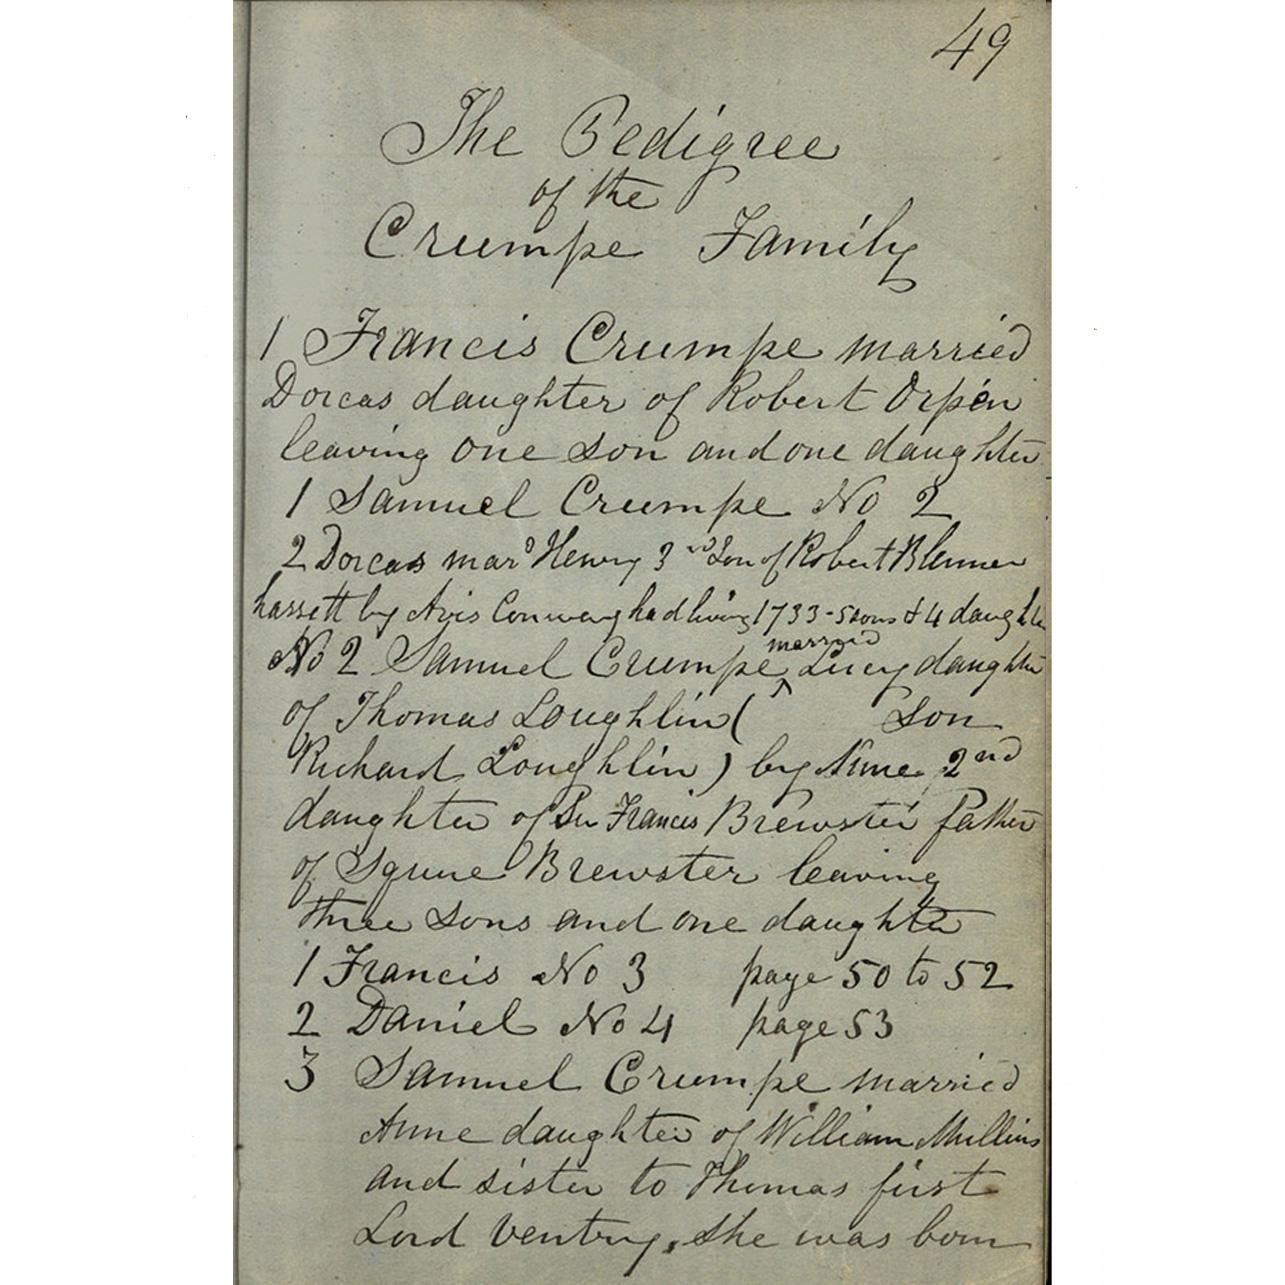 49
The Pedigree
of the
Crumpe Family
1 Francis Crumpe married
Dorcas daughter of Robert Orpen
leaving one son and one daughter
1 Samuel Crumpe No 2
2 Dorcas mard Henry 3rd Son of Robert Blenner
hassett by Avis Conway had living 1733 - 5 sons & 4 daughter
No 2 Samuel Crumpe married Lucy daughter
of Thomas Loughlin ( son
Richard Loughlin ) by Anne 2nd
daughter of Sir Francis Brewster father
of Squire Brewster leaving
three sons and one daughter
1 Francis No 3 page 50 to 52
2 Daniel No 4 page 53
3 Samuel Crumpe married
Anne daughter of William Mullins
and sister to Thomas first
Lord Ventry, She was born